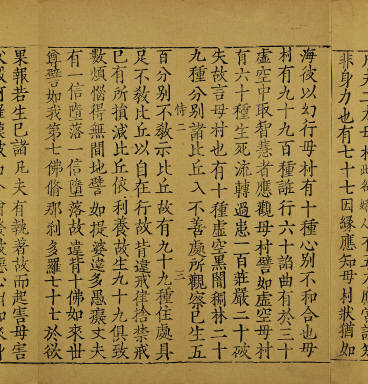 非身力也有七十七因緣應知母村狀猶如
海彼以幻行母村有十種心別不和合也母
村有九十九百種誑行六十諂曲有於三十
虛空中取智慧者應觀母村譬如虛空母村
有六十種生死流轉過患一百莊嚴二十破
失故言母村也有十種虛空黑闇稠林二十
九種分別諸比丘入不善處所觀察已生知
侍二
三
百分別不敬示比丘故有九十九種住處具
足不敬比丘以自在行故背違戒律捨禁戒
已有所損減比丘依利養故生九十九俱致
數煩惱得無間地譬如提婆達多愚癡丈夫
有一信墮落一信墮落故違背十佛如來世
尊譬如我第七佛脩那利多羅七十七於欲
果報若生已諸凡夫有執著故而起害母害